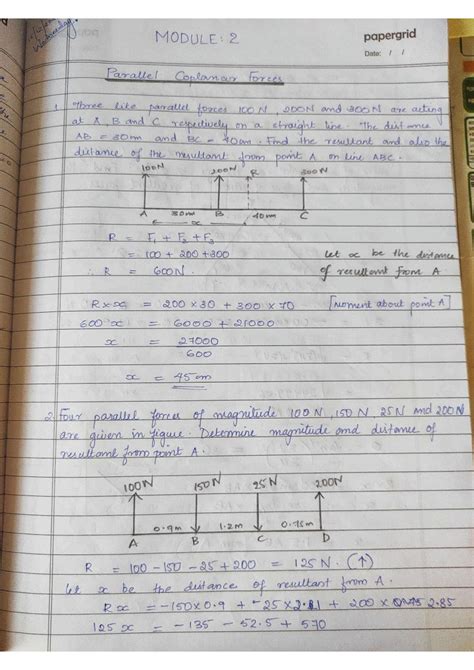 MODULE: 2
papergrid
Date: / /
Parallel Coplanar Forces
1. Three like parallel forces 100N, 200N and 300N are acting
at A, B and C respectively on a straight line. The distance
AB = 30cm and BC = 40cm. Find the resultant and also the
distance of the resultant from point A on line ABC.
100N 200N R 300N
A 30cm B 40cm C
x
R = F1 + F2 + F3
= 100 + 200 + 300
∴ R = 600N.
let x be the distance
of resultant from A
R × x = 200 × 30 + 300 × 70 [Moment about point A]
600 x = 6000 + 21000
x = 27000
600
x = 45cm
2. Four parallel forces of magnitude 100N, 150N, 25N and 200N
are given in figure. Determine magnitude and distance of
resultant from point A.
100N 150N 25N 200N
0.9m 1.2m 0.75m
A B C D
R = 100 - 150 - 25 + 200 = 125N. (↑)
let x be the distance of resultant from A.
R x = -150 × 0.9 + -25 × 2.1 + 200 × 2.85
125 x = -135 - 52.5 + 570